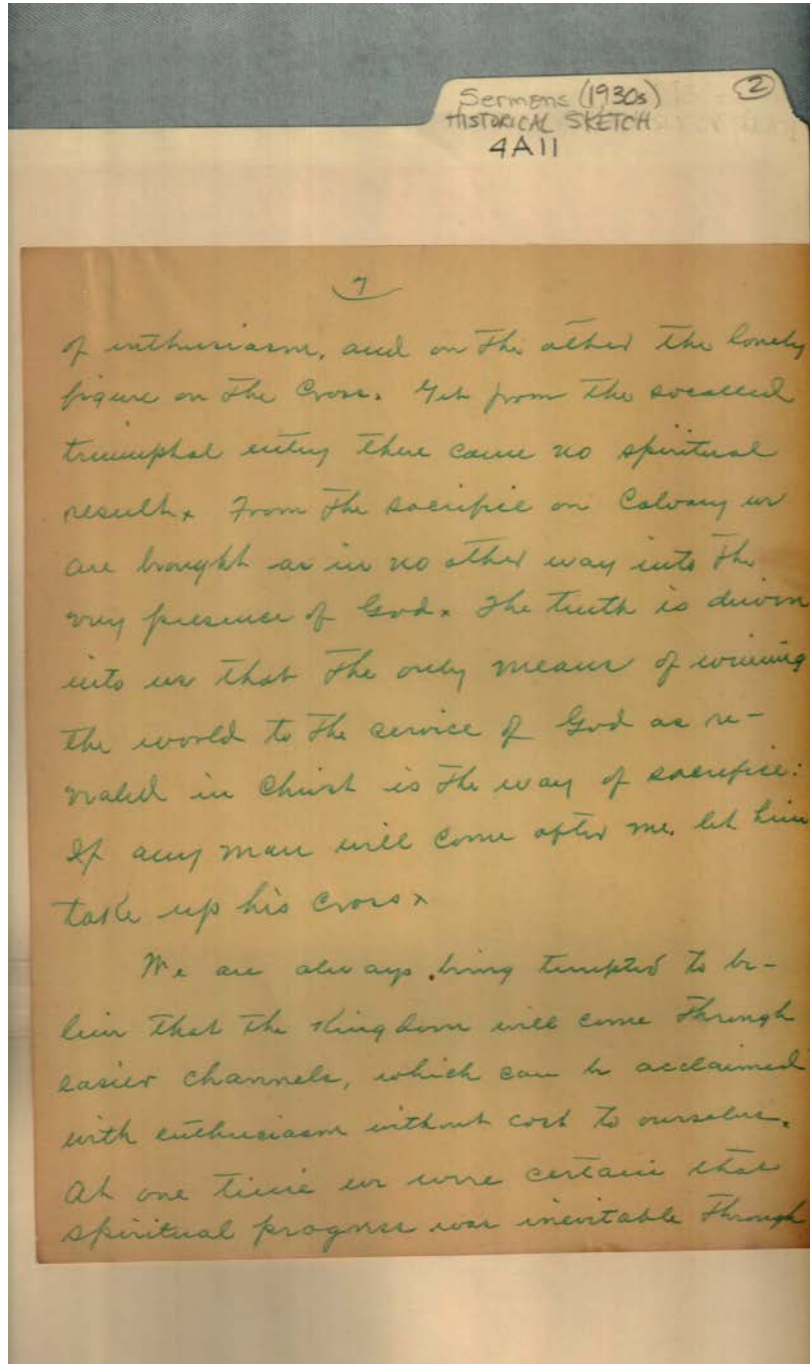 Sermens (1930s) 2
HISTORICAL SKETCH
4A11
7
of enthusiasm, and on the other the lonely
figure on the Cross. Yet from the socalled
triumphal entry there came no spiritual
result. From the sacrifice on Calvary we
are brought as in no other way into the
very presence of God. The truth is driven
into us that the only means of winning
the world to the service of God as re-
vealed in Christ is the way of sacrifice:
If any man will come after me, let him
take up his cross.
We are always being tempted to be-
lieve that the Kingdom will come through
easier channels, which can be acclaimed
with enthusiasm without cost to ourselves.
At one time we were certain that
spiritual progress was inevitable through